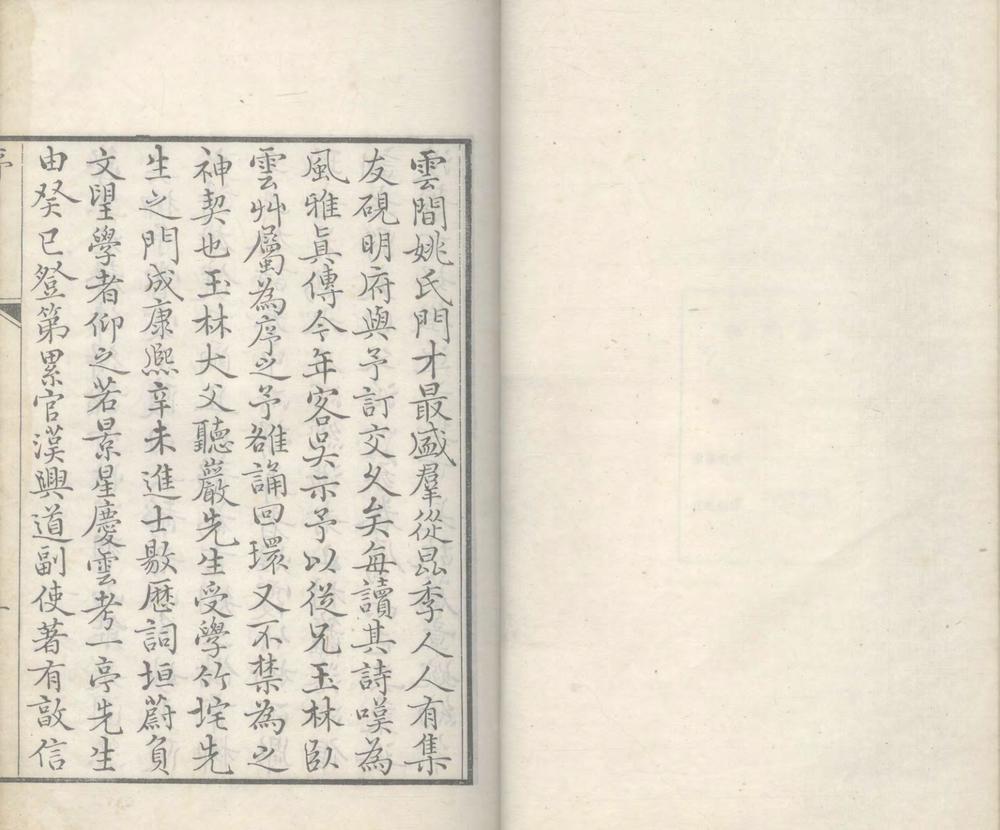 雲間姚氏門才最盛羣從昆季人人有集
友硯明府與予訂交久矣每讀其詩嘆為
風雅眞傳今年客吳示予以從兄玉林臥
雲艸屬為序之予雒誦回環又不禁為之
神契也玉林大父聽巖先生受學竹垞先
生之門成康熙辛未進士敭歷詞垣蔚負
文望學者仰之若景星慶雲考一亭先生
由癸巳登第累官漢興道副使著有敼信
序
一